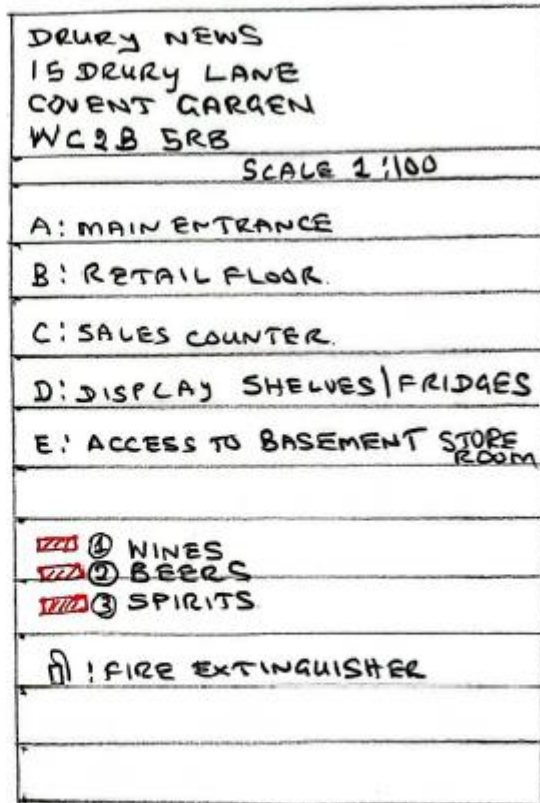 DRURY NEWS
15 DRURY LANE
COVENT GARGEN
WC2B 5RB
SCALE 1:100
A: MAIN ENTRANCE
B: RETAIL FLOOR.
C: SALES COUNTER.
D: DISPLAY SHELVES/FRIDGES
E: ACCESS TO BASEMENT STORE ROOM
① WINES
② BEERS
③ SPIRITS
: FIRE EXTINGUISHER